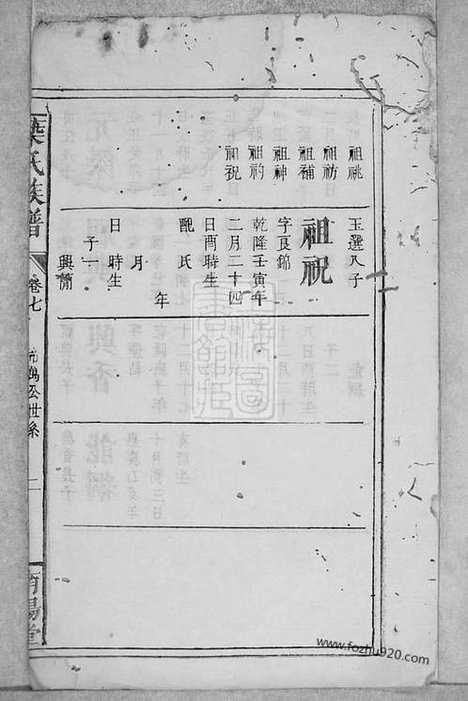 祖祧
祖祊
祖補
祖神
祖礿
祖祝
玉選八子
祖祝
字良錦
乾隆壬寅年
二月二十四
日酉時生
配氏
年
月
日時生
子一
興簡
葉氏族譜
卷七
萬公世系
二
南陽堂
www.fozhu920.com